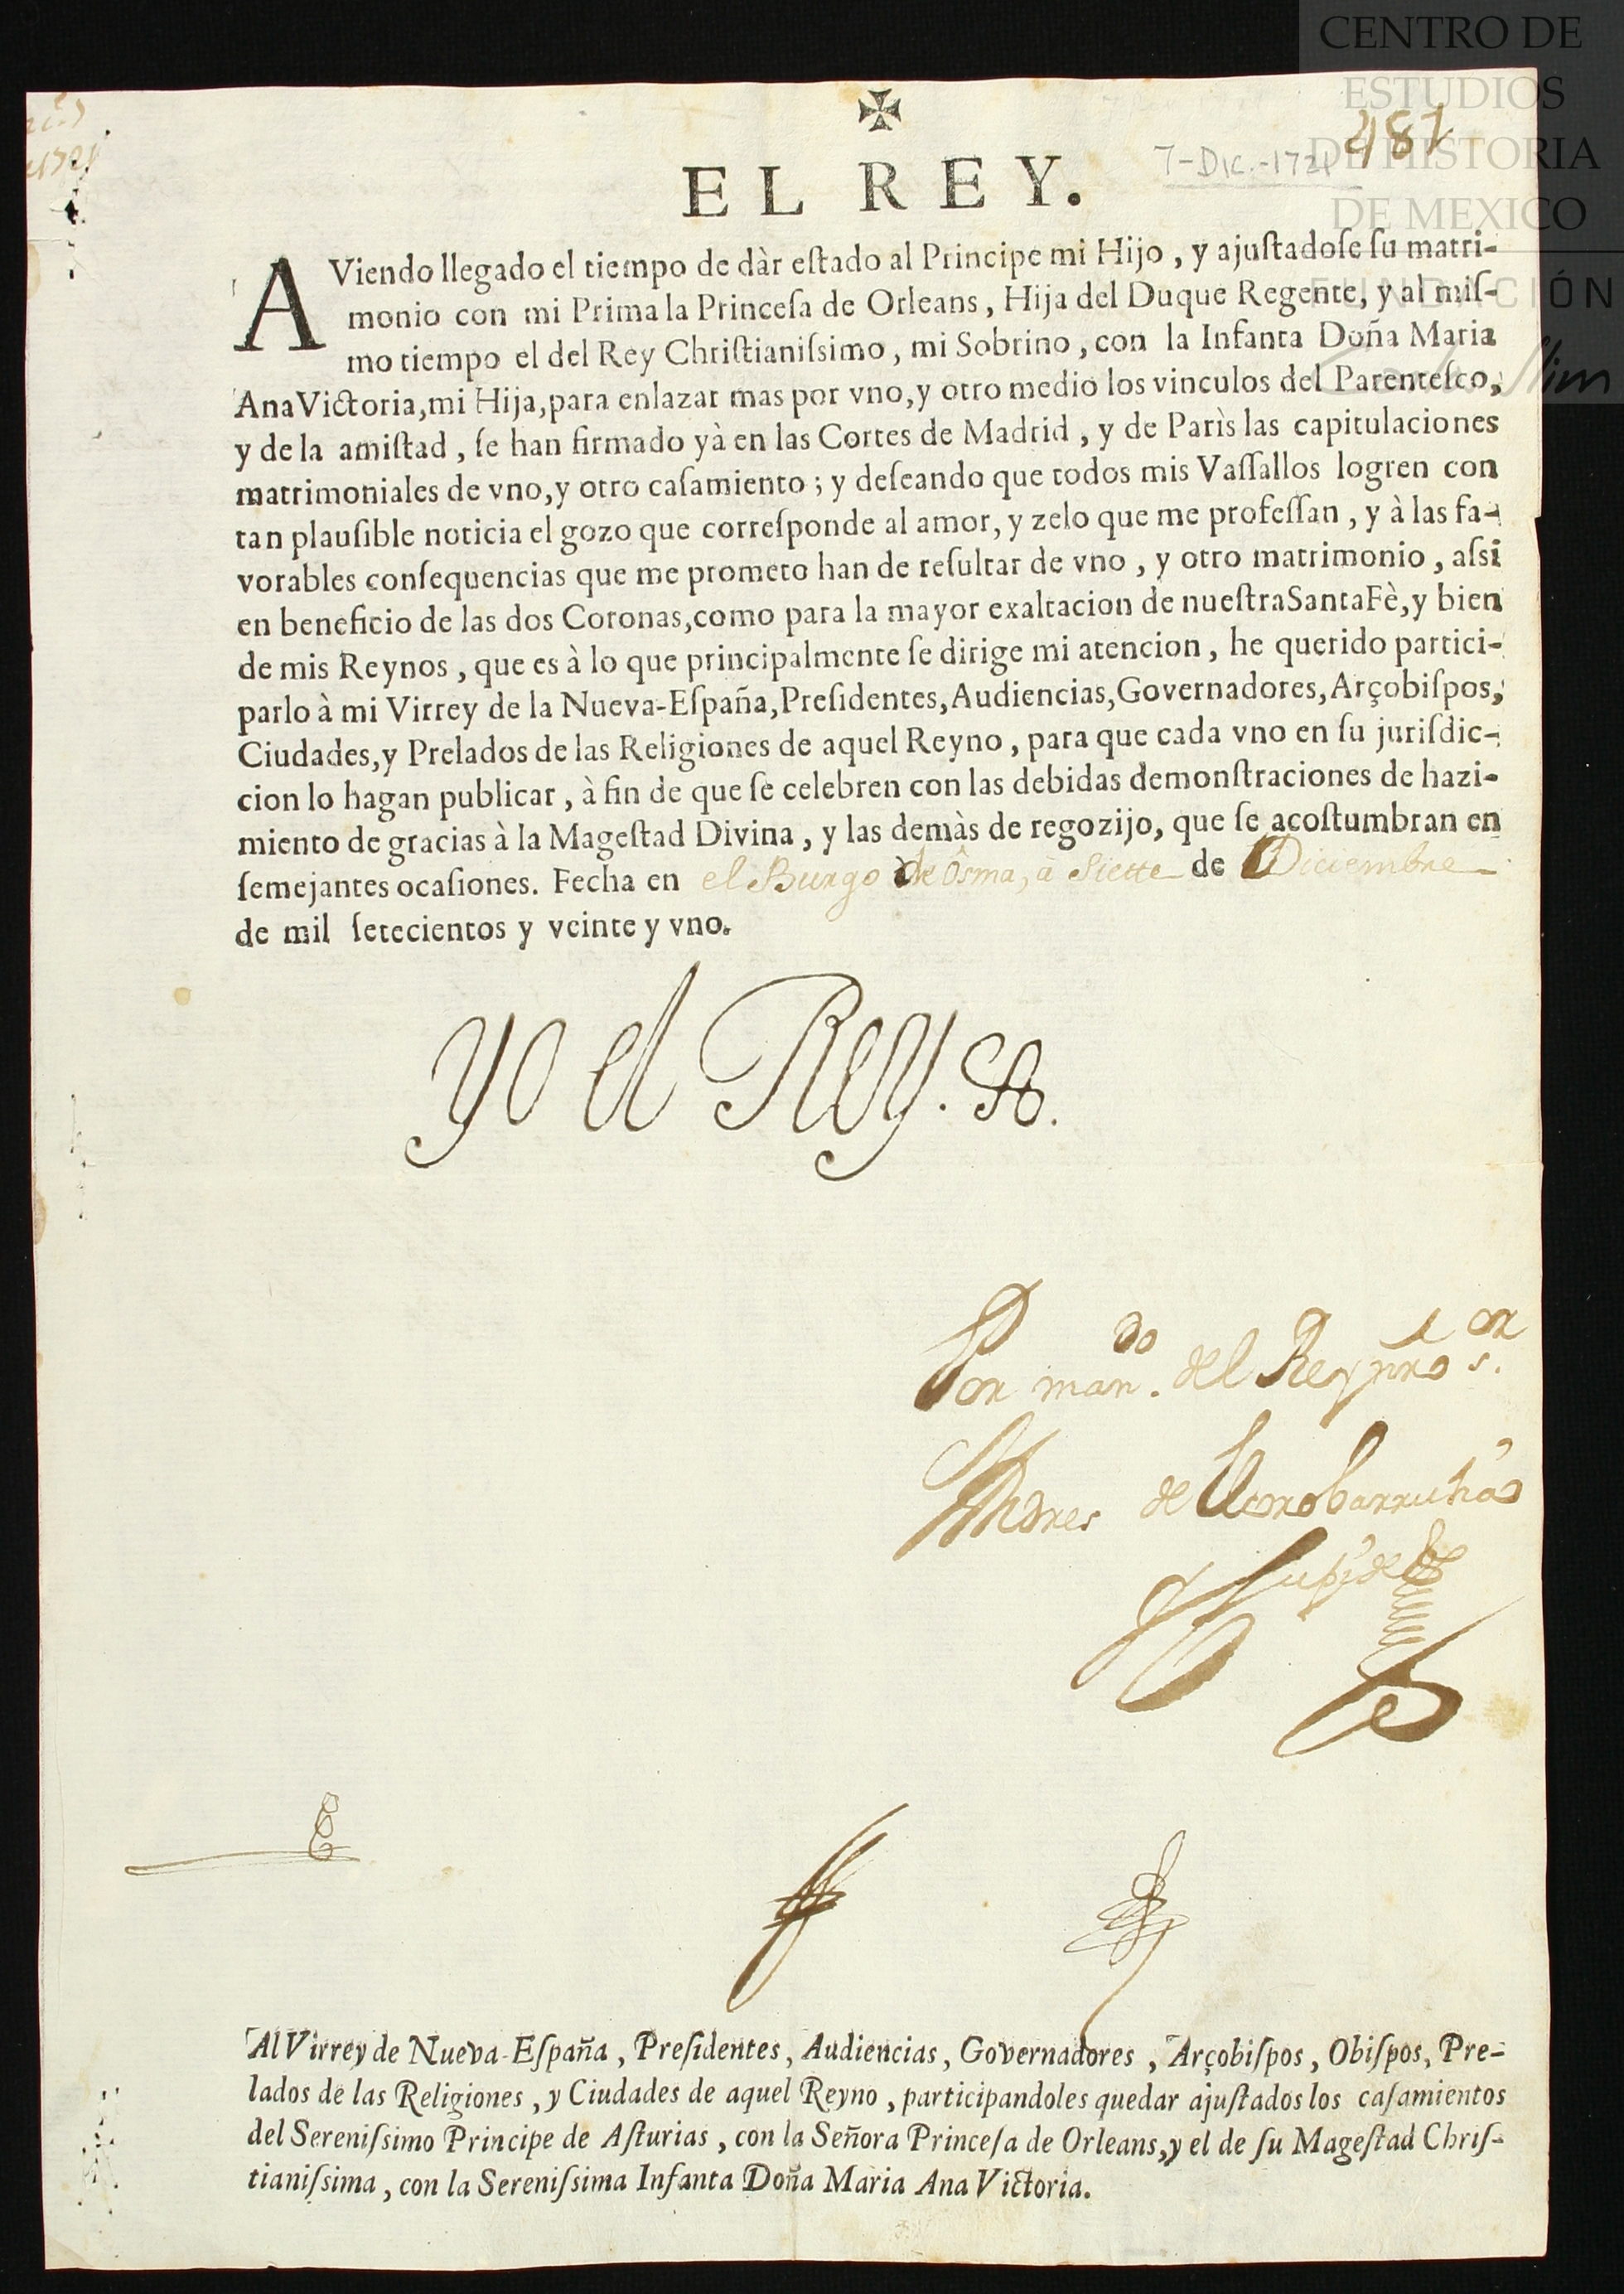 CENTRO DE
ESTUDIOS
DE HISTORIA
DE MEXICO
FUNDACIÓN
Carlos Slim
1721
481
7-Dic.-1721
✠
EL REY.
AViendo llegado el tiempo de dàr eſtado al Principe mi Hijo, y ajuſtadoſe ſu matri-
monio con mi Prima la Princeſa de Orleans, Hija del Duque Regente, y al miſ-
mo tiempo el del Rey Chriſtianiſsimo, mi Sobrino, con la Infanta Doña Maria
Ana Victoria, mi Hija, para enlazar mas por vno, y otro medio los vinculos del Parenteſco,
y de la amiſtad, ſe han firmado yà en las Cortes de Madrid, y de Parìs las capitulaciones
matrimoniales de vno, y otro caſamiento; y deſeando que todos mis Vaſſallos logren con
tan plauſible noticia el gozo que correſponde al amor, y zelo que me profeſſan, y à las fa-
vorables conſequencias que me prometo han de reſultar de vno, y otro matrimonio, aſsi
en beneficio de las dos Coronas, como para la mayor exaltacion de nueſtra Santa Fè, y bien
de mis Reynos, que es à lo que principalmente ſe dirige mi atencion, he querido partici-
parlo à mi Virrey de la Nueva-Eſpaña, Preſidentes, Audiencias, Governadores, Arçobiſpos,
Ciudades, y Prelados de las Religiones de aquel Reyno, para que cada vno en ſu juriſdic-
cion lo hagan publicar, à fin de que ſe celebren con las debidas demonſtraciones de hazi-
miento de gracias à la Mageſtad Divina, y las demàs de regozijo, que ſe acoſtumbran en
ſemejantes ocaſiones. Fecha en el Burgo de Osma, a Siette de Diciembre
de mil ſetecientos y veinte y vno.
Yo el Rey.
Por man.do del Rey nro s.or
Andres de
Al Virrey de Nueva-Eſpaña, Preſidentes, Audiencias, Governadores, Arçobiſpos, Obiſpos, Pre-
lados de las Religiones, y Ciudades de aquel Reyno, participandoles quedar ajuſtados los caſamientos
del Sereniſsimo Principe de Aſturias, con la Señora Princeſa de Orleans, y el de ſu Mageſtad Chriſ-
tianiſsima, con la Sereniſsima Infanta Doña Maria Ana Victoria.